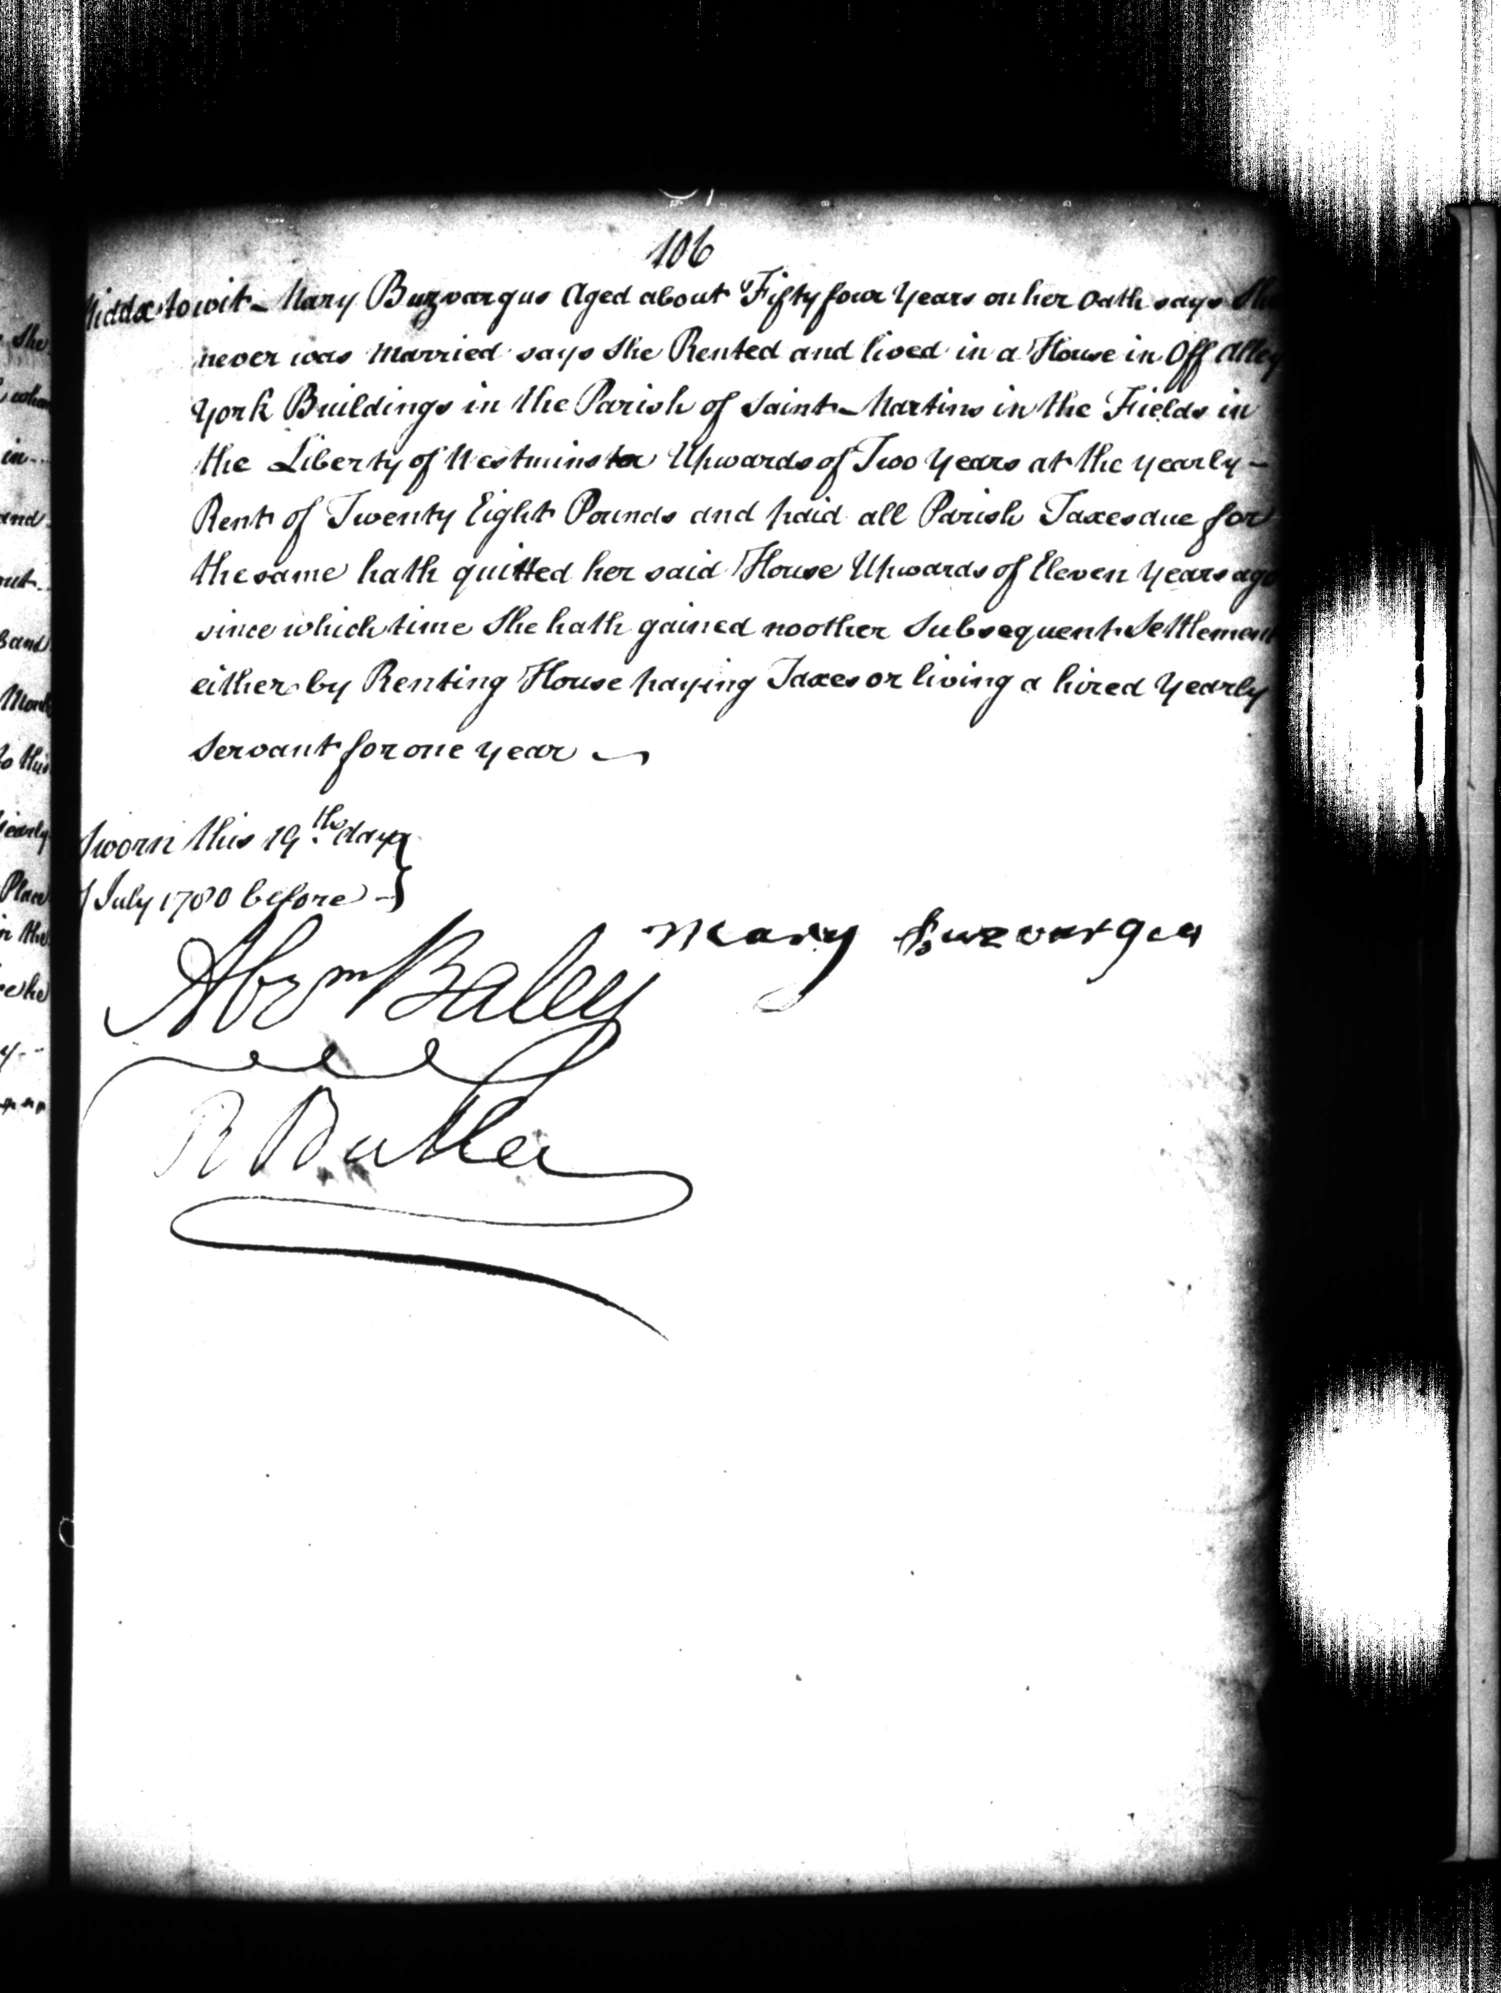 106
Middx to wit - Mary Buzvargus Aged about Fifty four Years on her Oath says She
never was Married says She Rented and lived in a House in Off Alley
York Buildings in the Parish of Saint Martins in the Fields in
the Liberty of Westminster Upwards of Two Years at the yearly -
Rent of Twenty Eight Pounds and paid all Parish Taxes due for
the same hath quitted her said House Upwards of Eleven Years ago
since which time She hath gained no other Subsequent Settlement
either by Renting House paying Taxes or living a hired Yearly
Servant for one Year
Sworn this 19th day
of July 1780 before
Mary Buzvargus
Abrm Baley
R Butler
She
in
and
Band
to this
Yearly
Place
in the